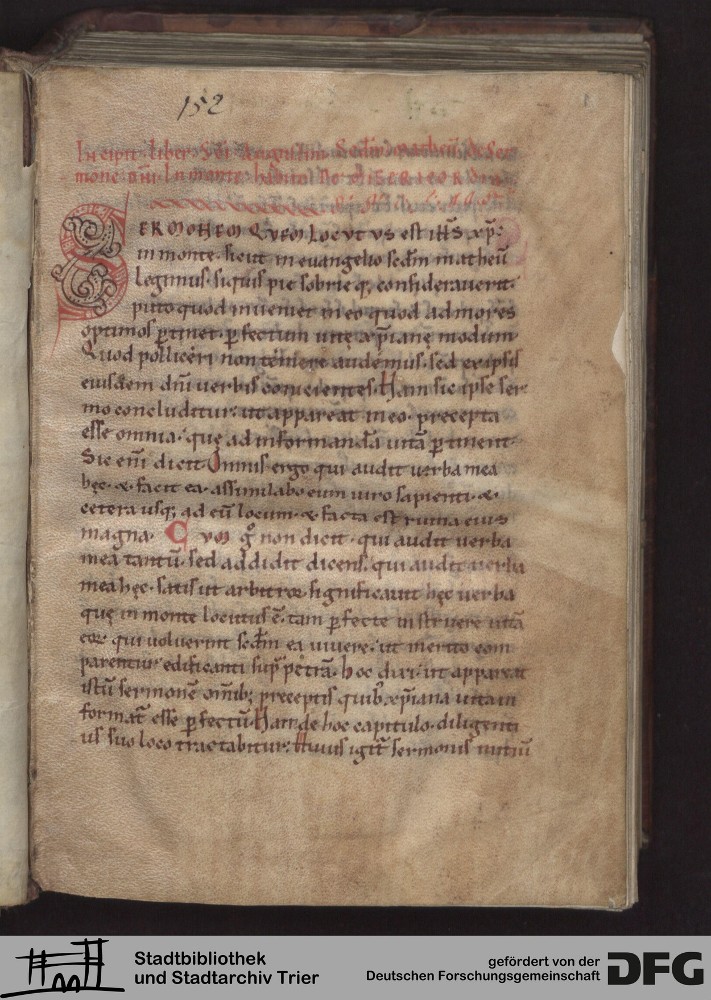 152
1
Incipit liber Sci Augustini Scdm matheu de Ser
mone dni In monte habito De MISERICORDIA
SERMONEM QVEM Locutus est ihs xp̄c
in monte. sicut in euangelio scdm matheū
Legimus. siquis pie sobrie q; considerauerit.
puto quod inueniet in eo quod ad mores
optimos ptinet. pfectum uitę xp̄ianę modum.
Quod polliceri non temere audemus. sed ex ipsis
eiusdem dnī uerbis conicientes. Nam sic ipse ser
mo concluditur. ut appareat in eo precepta
esse omnia. quę ad informandā uitā ptinent.
Sic enī dicit Omnis ergo qui audit uerba mea
hęc. & facit ea. assimilabo eum uiro sapienti. &
cetera usq; ad eū locum. & facta est ruina eius
magna. Cum g̊ non dicit. qui audit uerba
mea tantū. sed addidit dicens. qui audit uerba
mea hęc. satis ut arbitror significauit hęc uerba
quę in monte locutus ē. tam pfecte instruere uitā
eor qui uoluerint scdm ea uiuere. ut merito com
parentur edificanti sup petrā. hoc dixi ut appareat
istū sermonē omīb; preceptis quib; xp̄iana uita in
format esse pfectū. Nam de hoc capitulo. diligenti
us suo loco tractabitur. Huius igit sermonis initiū
Stadtbibliothek
und Stadtarchiv Trier
gefördert von der
Deutschen Forschungsgemeinschaft
DFG